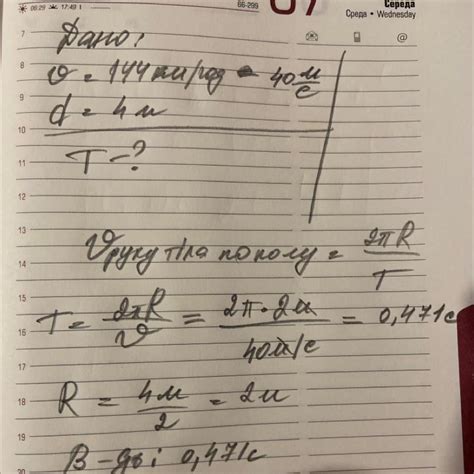 06:29 17:49 66-299 07 Середа
Среда • Wednesday
@
7
Дано:
8
v = 144 км/год = 40 м/с
9
d = 4 м
10
T - ?
11
12
13
v руху тіла по колу = 2πR/T
14
15
T = 2πR/v = 2π·2м/40м/с = 0,471с
16
17
R = 4м/2 = 2м
18
19
В-дь: 0,471с
20